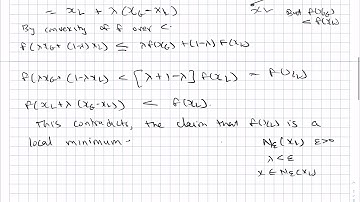 = x_L + λ (x_G - x_L)
x_L But f(x_G) < f(x_L)
By convexity of f over C.
f(λx_G + (1-λ)x_L) ≤ λf(x_G) + (1-λ) f(x_L)
f(λx_G + (1-λ)x_L) < [λ+1-λ] f(x_L) = f(x_L)
f(x_L + λ (x_G - x_L)) < f(x_L).
This contradicts, the claim that f(x_L) is a
local minimum.
N_ε(x_L) ε>0
λ < ε
x ∈ N_ε(x_L)